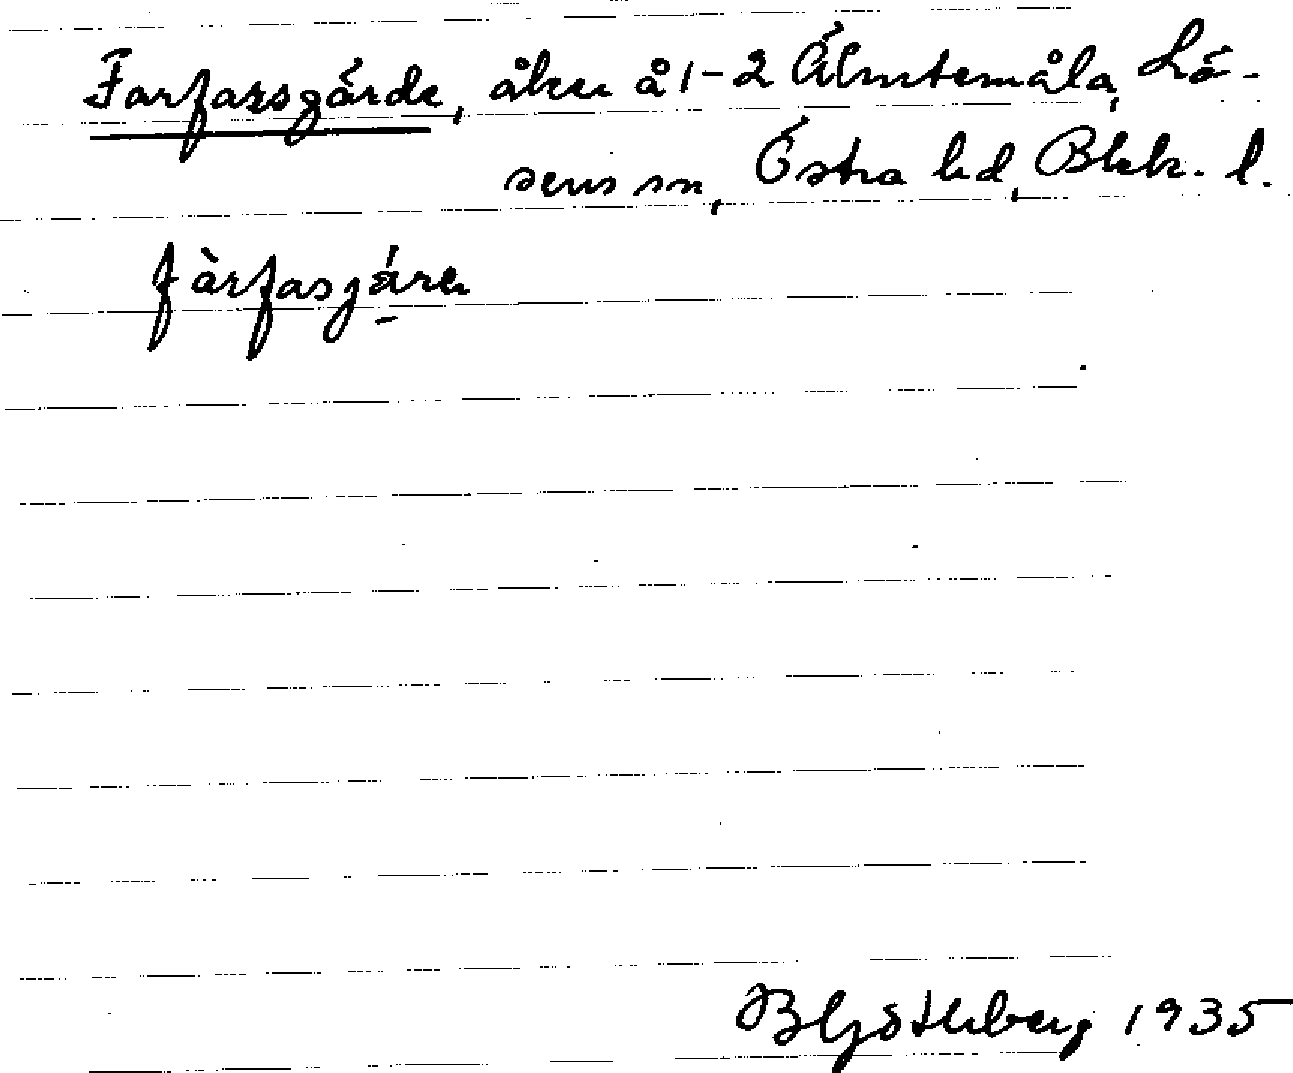 Farfarsgärde, åker å 1-2 Älmtemåla, Lö-
sens sn, Östra hd, Blek. l.
fàrfasgáren
B Göthberg 1935